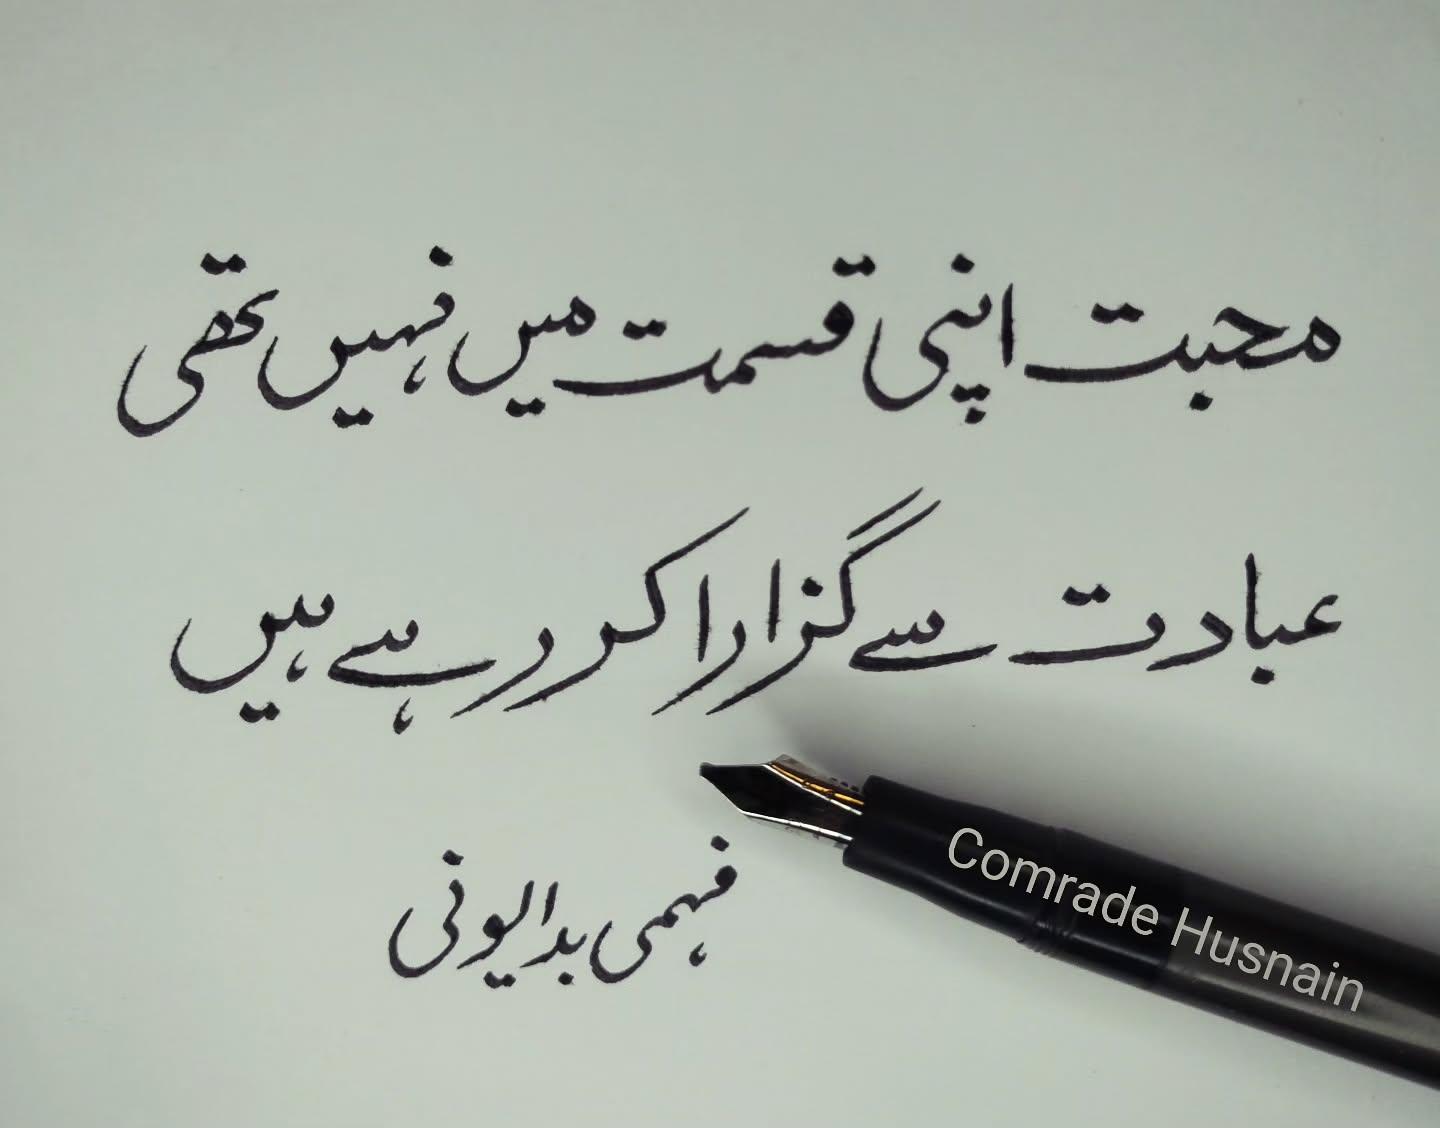 محبت اپنی قسمت میں نہیں تھی
عبادت سے گزارا کر رہے ہیں
فہمی بدایونی
Comrade Husnain